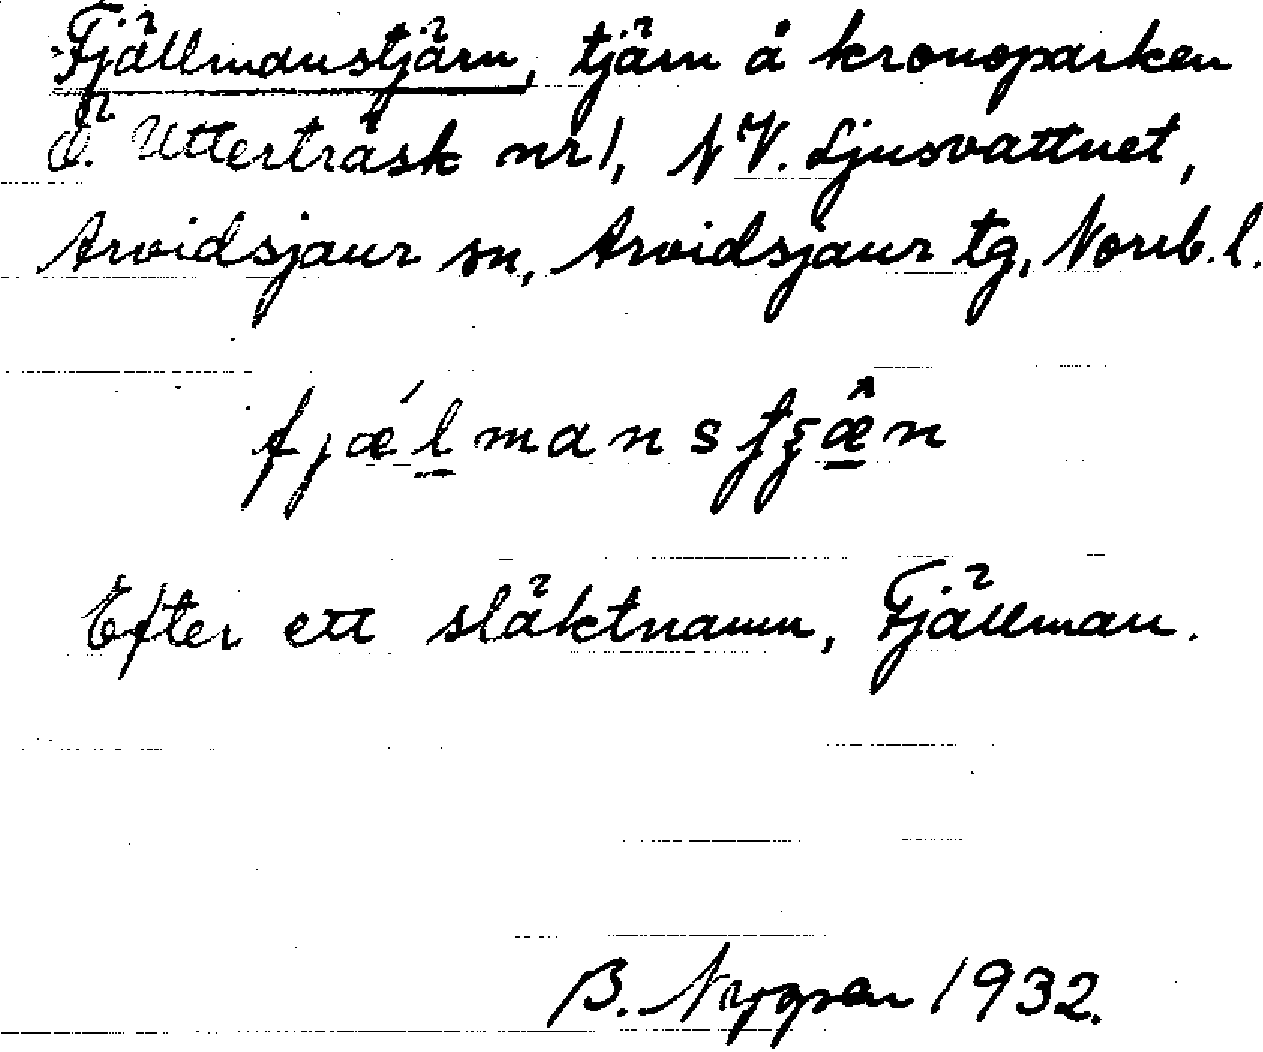 Fjällmanstjärn, tjärn å kronoparken
Ö. Utterträsk nr 1, NV. Ljusvattnet,
Arvidsjaur sn, Arvidsjaur tg, Norrb. l.
fjǽlmansʃʒæ̂n
Efter ett släktnamn, Fjällman.
B. Nygren 1932.